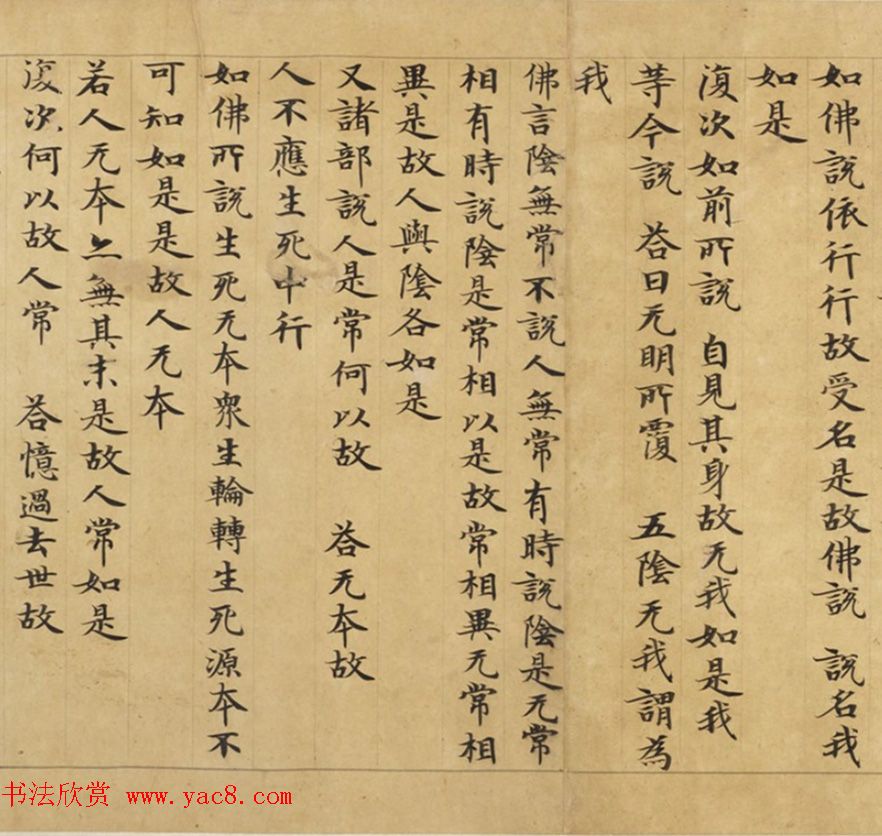 如佛説依行行故受名是故佛説 説名我
如是
復次如前所説 自見其身故无我如是我
等今説 荅曰无明所覆 五陰无我謂為
我
佛言陰無常不説人無常有時説陰是无常
相有時説陰是常相以是故常相異无常相
異是故人與陰各如是
又諸部説人是常何以故 荅无本故
人不應生死中行
如佛所説生死无本衆生輪轉生死源本不
可知如是是故人无本
若人无本亦無其末是故人常如是
復次何以故人常 荅憶過去世故
书法欣赏 www.yac8.com